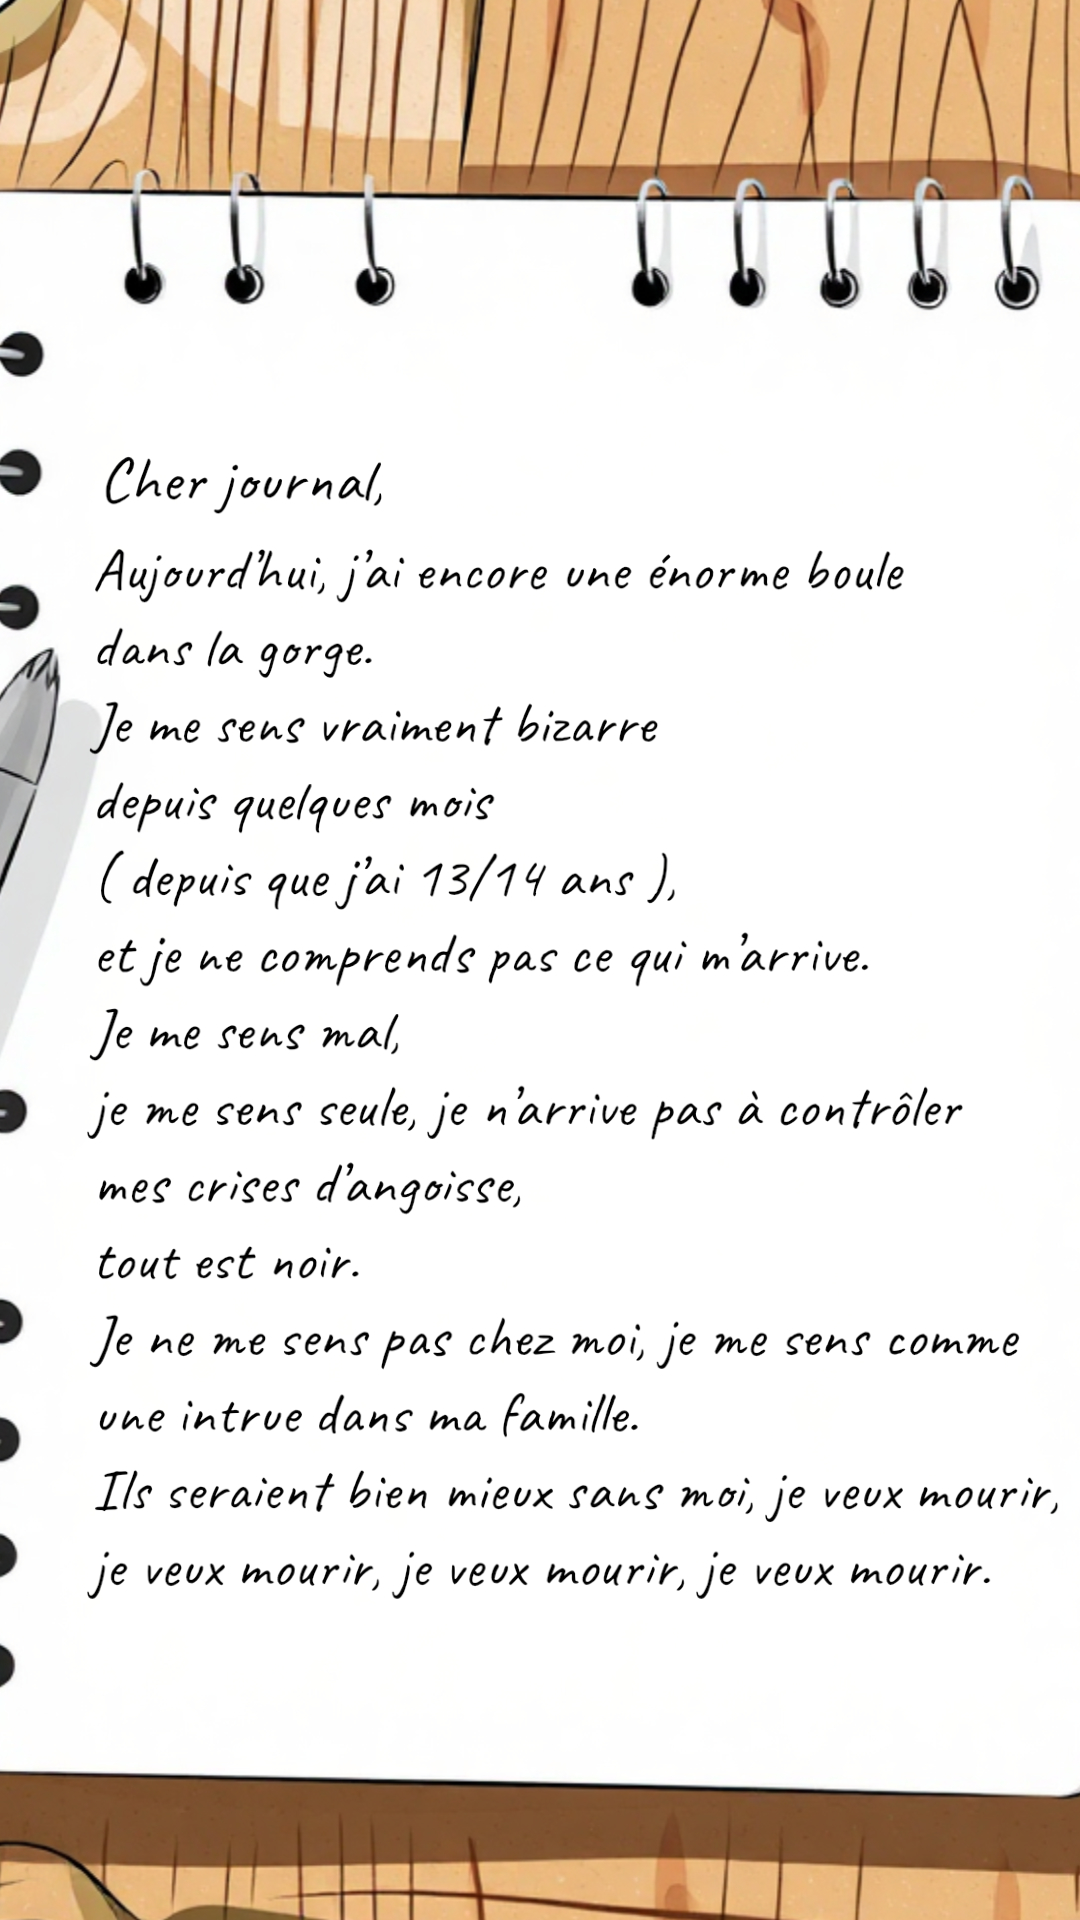 Cher journal,
Aujourd’hui, j’ai encore une énorme boule
dans la gorge.
Je me sens vraiment bizarre
depuis quelques mois
( depuis que j’ai 13/14 ans ),
et je ne comprends pas ce qui m’arrive.
Je me sens mal,
je me sens seule, je n’arrive pas à contrôler
mes crises d’angoisse,
tout est noir.
Je ne me sens pas chez moi, je me sens comme
une intrue dans ma famille.
Ils seraient bien mieux sans moi, je veux mourir,
je veux mourir, je veux mourir, je veux mourir.